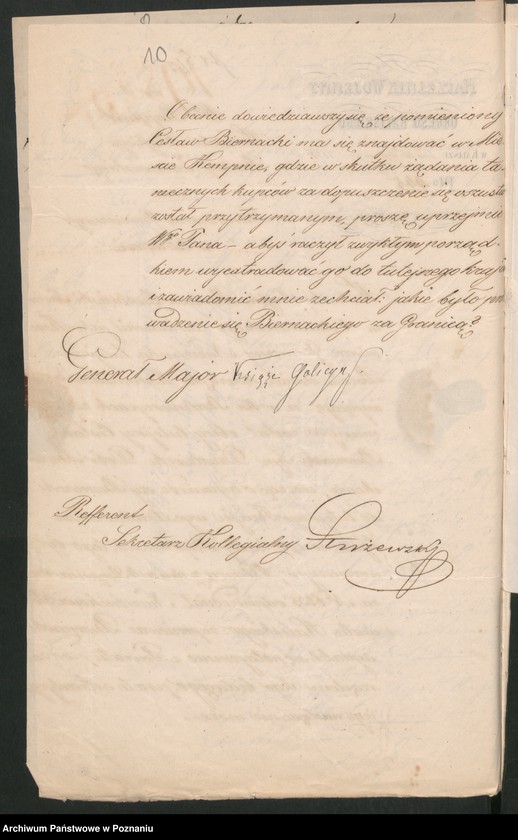 10
Obecnie dowiedziawszy się, że pomieniony
Cesław Biernacki ma się znajdować w Mie
ście Kempnie, gdzie w skutku żądania ta
mecznych kupców za dopuszczenie się oszustw
został przytrzymanym, proszę uprzejmie
WR Pana – abyś raczył zwykłym porząd
kiem wyextradować go do tutejszego kraju
i zawiadomić mnie zechciał: jakie było, pro
wadzenie się Biernackiego za Granicą?
Generał Major Książe Golicyn
Refferent
Sekretarz Kollegialny
Archiwum Państwowe w Poznaniu